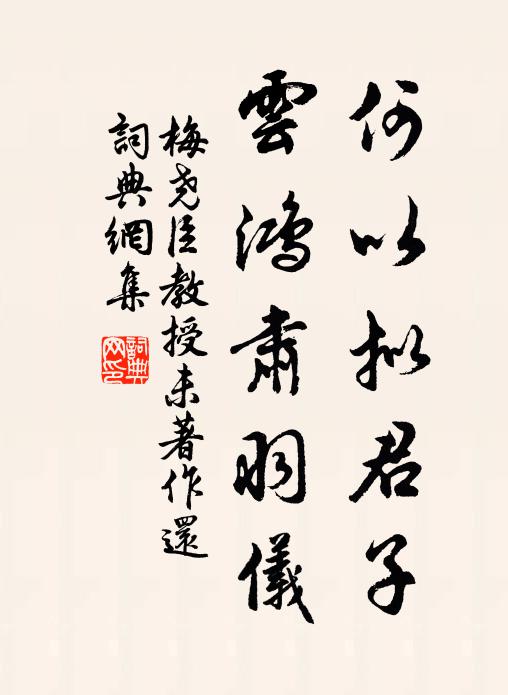 何以拟君子
雲鴻肅羽儀
梅尧臣教授未著作還
詞典網集
詞典网印